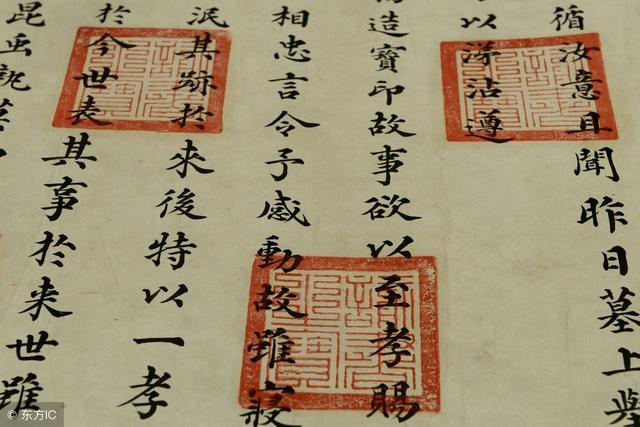 循汝意且聞昨日墓上舉
以沾遵
造寶印故事欲以至孝賜
相忠言令予感動故雖寢
泯其跡於來後特以一孝
於今世表其事於来世雖
昆
© 东方IC